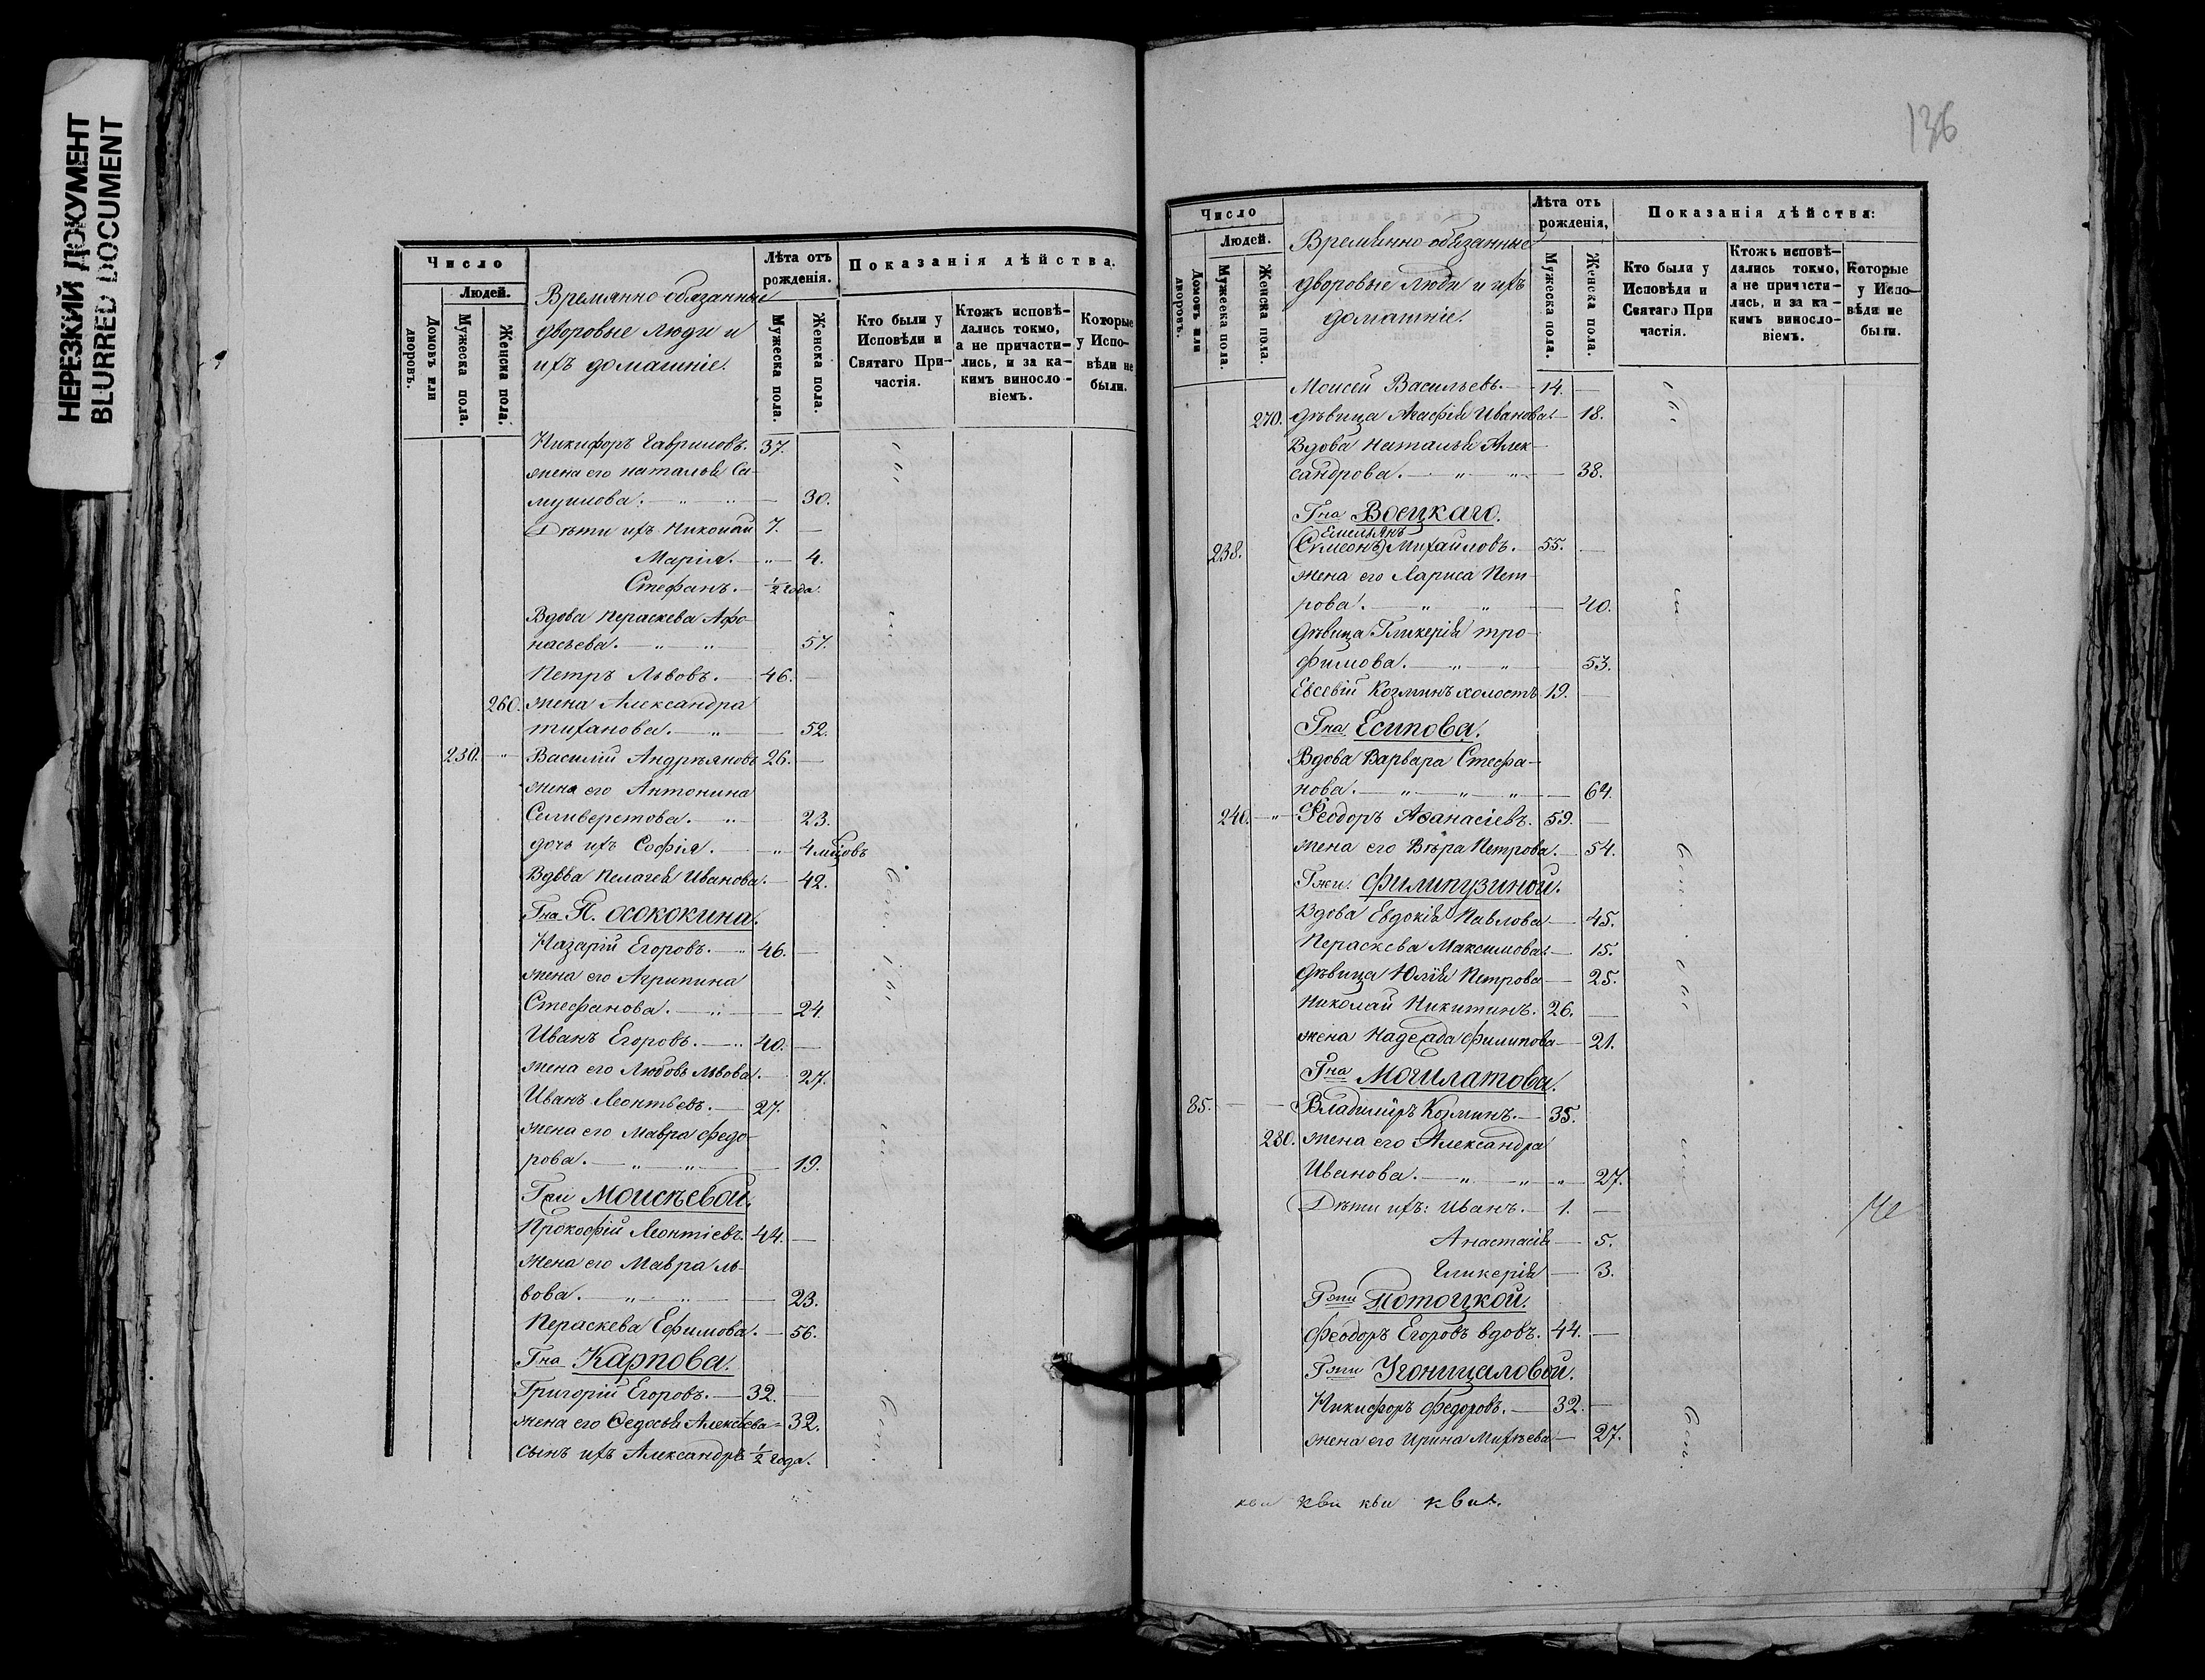 НЕРЕЗКИЙ ДОКУМЕНТ
BLURRED DOCUMENT
Число
Людей.
Домовъ или дворовъ.
Мужеска пола.
Женска пола.
Времянно обязанные
дворовые люди и
ихъ домашніе.
Лѣта отъ
рожденія.
Мужеска пола.
Женска пола.
Показанія дѣйства.
Кто были у
Исповѣди и
Святаго При-
частія.
Ктожъ исповѣ-
дались токмо,
а не причасти-
лись, и за ка-
кимъ винosло-
віемъ.
Которые
у Испо-
вѣди не
были.
Никифоръ Гавриловъ. 37.
жена его Наталья Са-
муилова. 30.
Дѣти ихъ Николай 7.
Марія. 4.
Стефанъ. ½ года
Вдова Пераскева Афо-
насьева. 57.
Петръ Львовъ. 46.
260. жена Александра
тиханова. 52.
230. Василій Андреяновъ 26.
жена его Антонина
Селиверстова. 23.
дочь ихъ Софія. 4 мѣсцовъ
Вдова Пелагея Иванова. 42.
Гна П. Осококина.
Назарій Егоровъ. 46.
жена его Агрипина
Стефанова. 24.
Иванъ Егоровъ. 40.
жена его Любовь Львова. 27.
Иванъ Леонтьевъ. 27.
жена его Мавра Федо-
рова. 19.
Гжи Моисѣевой.
Прокофій Леонтіевъ. 44.
жена его Мавра Ль-
вова. 23.
Пераскева Ефимова. 56.
Гна Карпова.
Григорій Егоровъ. 32.
жена его Федосья Алексѣева 32.
сынъ ихъ Александръ ½ года.
136
Число
Людей.
Домовъ или дворовъ.
Мужеска пола.
Женска пола.
Времянно обязанные
дворовые люди и ихъ
домашніе.
Лѣта отъ
рожденія,
Мужеска пола.
Женска пола.
Показанія дѣйства:
Кто были у
Исповѣди и
Святаго При
частія.
Ктожъ исповѣ-
дались токмо,
а не причасти-
лись, и за ка-
кимъ винosло-
віемъ.
Которые
у Испо-
вѣди не
были.
Моисей Васильевъ. 14.
270. дѣвица Агафія Иванова 18.
Вдова Наталья Алек-
сандрова. 38.
Гна Воецкаго.
Емельянъ
238. (Симеонъ) Михайловъ. 55.
жена его Лариса Пет-
рова. 40.
дѣвица Гликерія тро-
фимова. 53.
Евсевій Козминъ холостъ 19.
Гна Есипова.
Вдова Варвара Стефа-
нова. 64.
240. Феодоръ Афанасіевъ. 59.
жена его Вѣра Петрова. 54.
Гжи Филипузиной.
Вдова Евдокія Павлова 45.
Пераскева Максимова 15.
дѣвица Юлія Петрова 25.
Николай Никитинъ. 26.
жена Надежда Филипова 21.
Гна Могилатова.
85. Владиміръ Козминъ. 35.
280. жена его Александра
Иванова. 27.
Дѣти ихъ: Иванъ. 1.
Анастасія 5.
Гликерія 3.
Гжи Потоцкой.
Феодоръ Егоровъ вдовъ. 44.
Гжи Угоницаловой.
Никифоръ Федоровъ. 32.
жена его Ирина Михѣева 27.
кви кви кви кви.